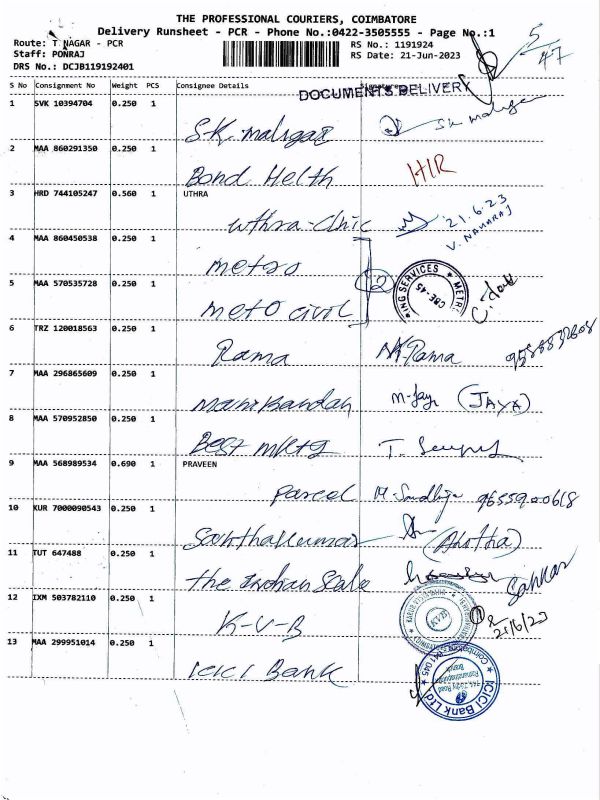 THE PROFESSIONAL COURIERS, COIMBATORE
Delivery Runsheet - PCR - Phone No.:0422-3505555 - Page No.:1
Route: T.NAGAR - PCR
RS No.: 1191924
Staff: PONRAJ
RS Date: 21-Jun-2023
DRS No.: DCJB119192401
5
47
S No Consignment No Weight PCS Consignee Details
DOCUMENTS DELIVERY
1 SVK 10394704 0.250 1
S.K. maligai
S.K. maligai
2 MAA 860291350 0.250 1
Bond Helth
3 HRD 744105247 0.560 1 UTHRA
uthra-clinic
21.6.23
4 MAA 860450538 0.250 1
metro
2
ING SERVICES * METR
CBE-45
5 MAA 570535728 0.250 1
meto civil
6 TRZ 120018563 0.250 1
Rama
7 MAA 296865609 0.250 1
manikandan
(JAYA)
8 MAA 570952850 0.250 1
Best
9 MAA 568989534 0.690 1 PRAVEEN
parcel
10 KUR 7000090543 0.250 1
Santhakumar
11 TUT 647488 0.250 1
the Indian
Sankar
12 IXM 503782110 0.250 1
K-V-B
KVB
21/6/23
13 MAA 299951014 0.250 1
ICICI Bank
ICICI Bank Ltd